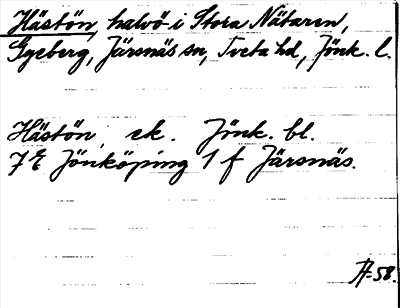 Hästön, halvö i Stora Nätaren,
Gyeberg, Järsnäs sn, Tveta hd, Jönk. l.
Hästön, ek. Jönk. bl.
7 E Jönköping 1 f Järsnäs.
-58.